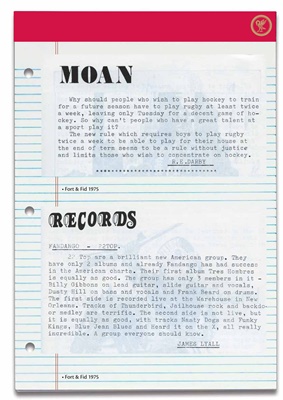 MOAN
Why should people who wish to play hockey to train
for a future season have to play rugby at least twice
a week, leaving only Tuesday for a decent game of ho-
ckey. So why can't people who have a great talent at
a sport play it?
The new rule which requires boys to play rugby
twice a week to be able to play for their house at
the end of term seems to be a rule without justice
and limits those who wish to concentrate on hockey.
• Fort & Fid 1975
RECORDS
FANDANGO - ZZTOP.
ZZ Top are a brilliant new American group. They
have only 2 albums and already Fandango has had success
in the American charts. Their first album Tres Hombres
is equally as good. The group has only 3 members in it -
Billy Gibbons on lead guitar, slide guitar and vocals,
Dusty Hill on bass and vocals and Frank Beard on drums.
The first side is recorded live at the Warehouse in New
Orleans. Tracks of Thunderbird, Jailhouse rock and backdo-
or medley are terrific. The second side is not live, but
it is equally as good, with tracks Nasty Dogs and Funky
Kings, Blue Jean Blues and Heard it on the X, all really
incredible. A group everyone should know.
JAMES LYALL
• Fort & Fid 1975